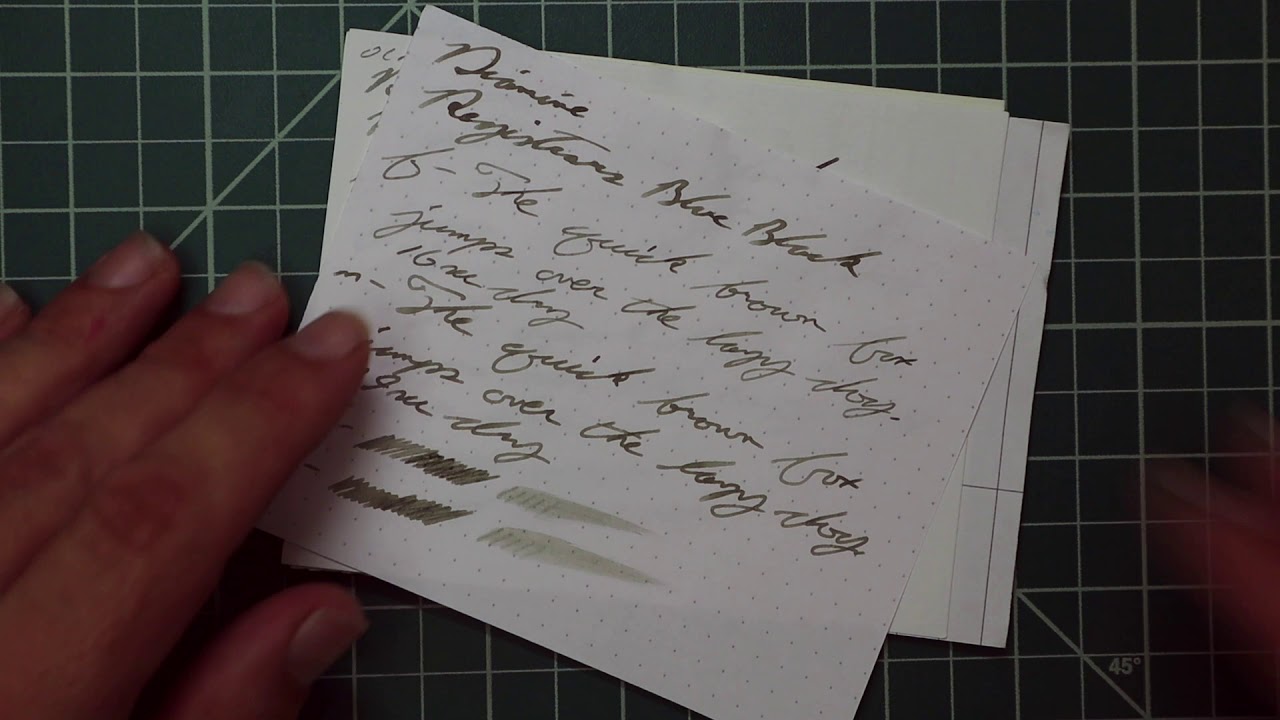 Diamine
Registrars Blue Black
f - The quick brown fox
jumps over the lazy dog.
16 sec dry
m - The quick brown fox
jumps over the lazy dog.
sec dry
45°